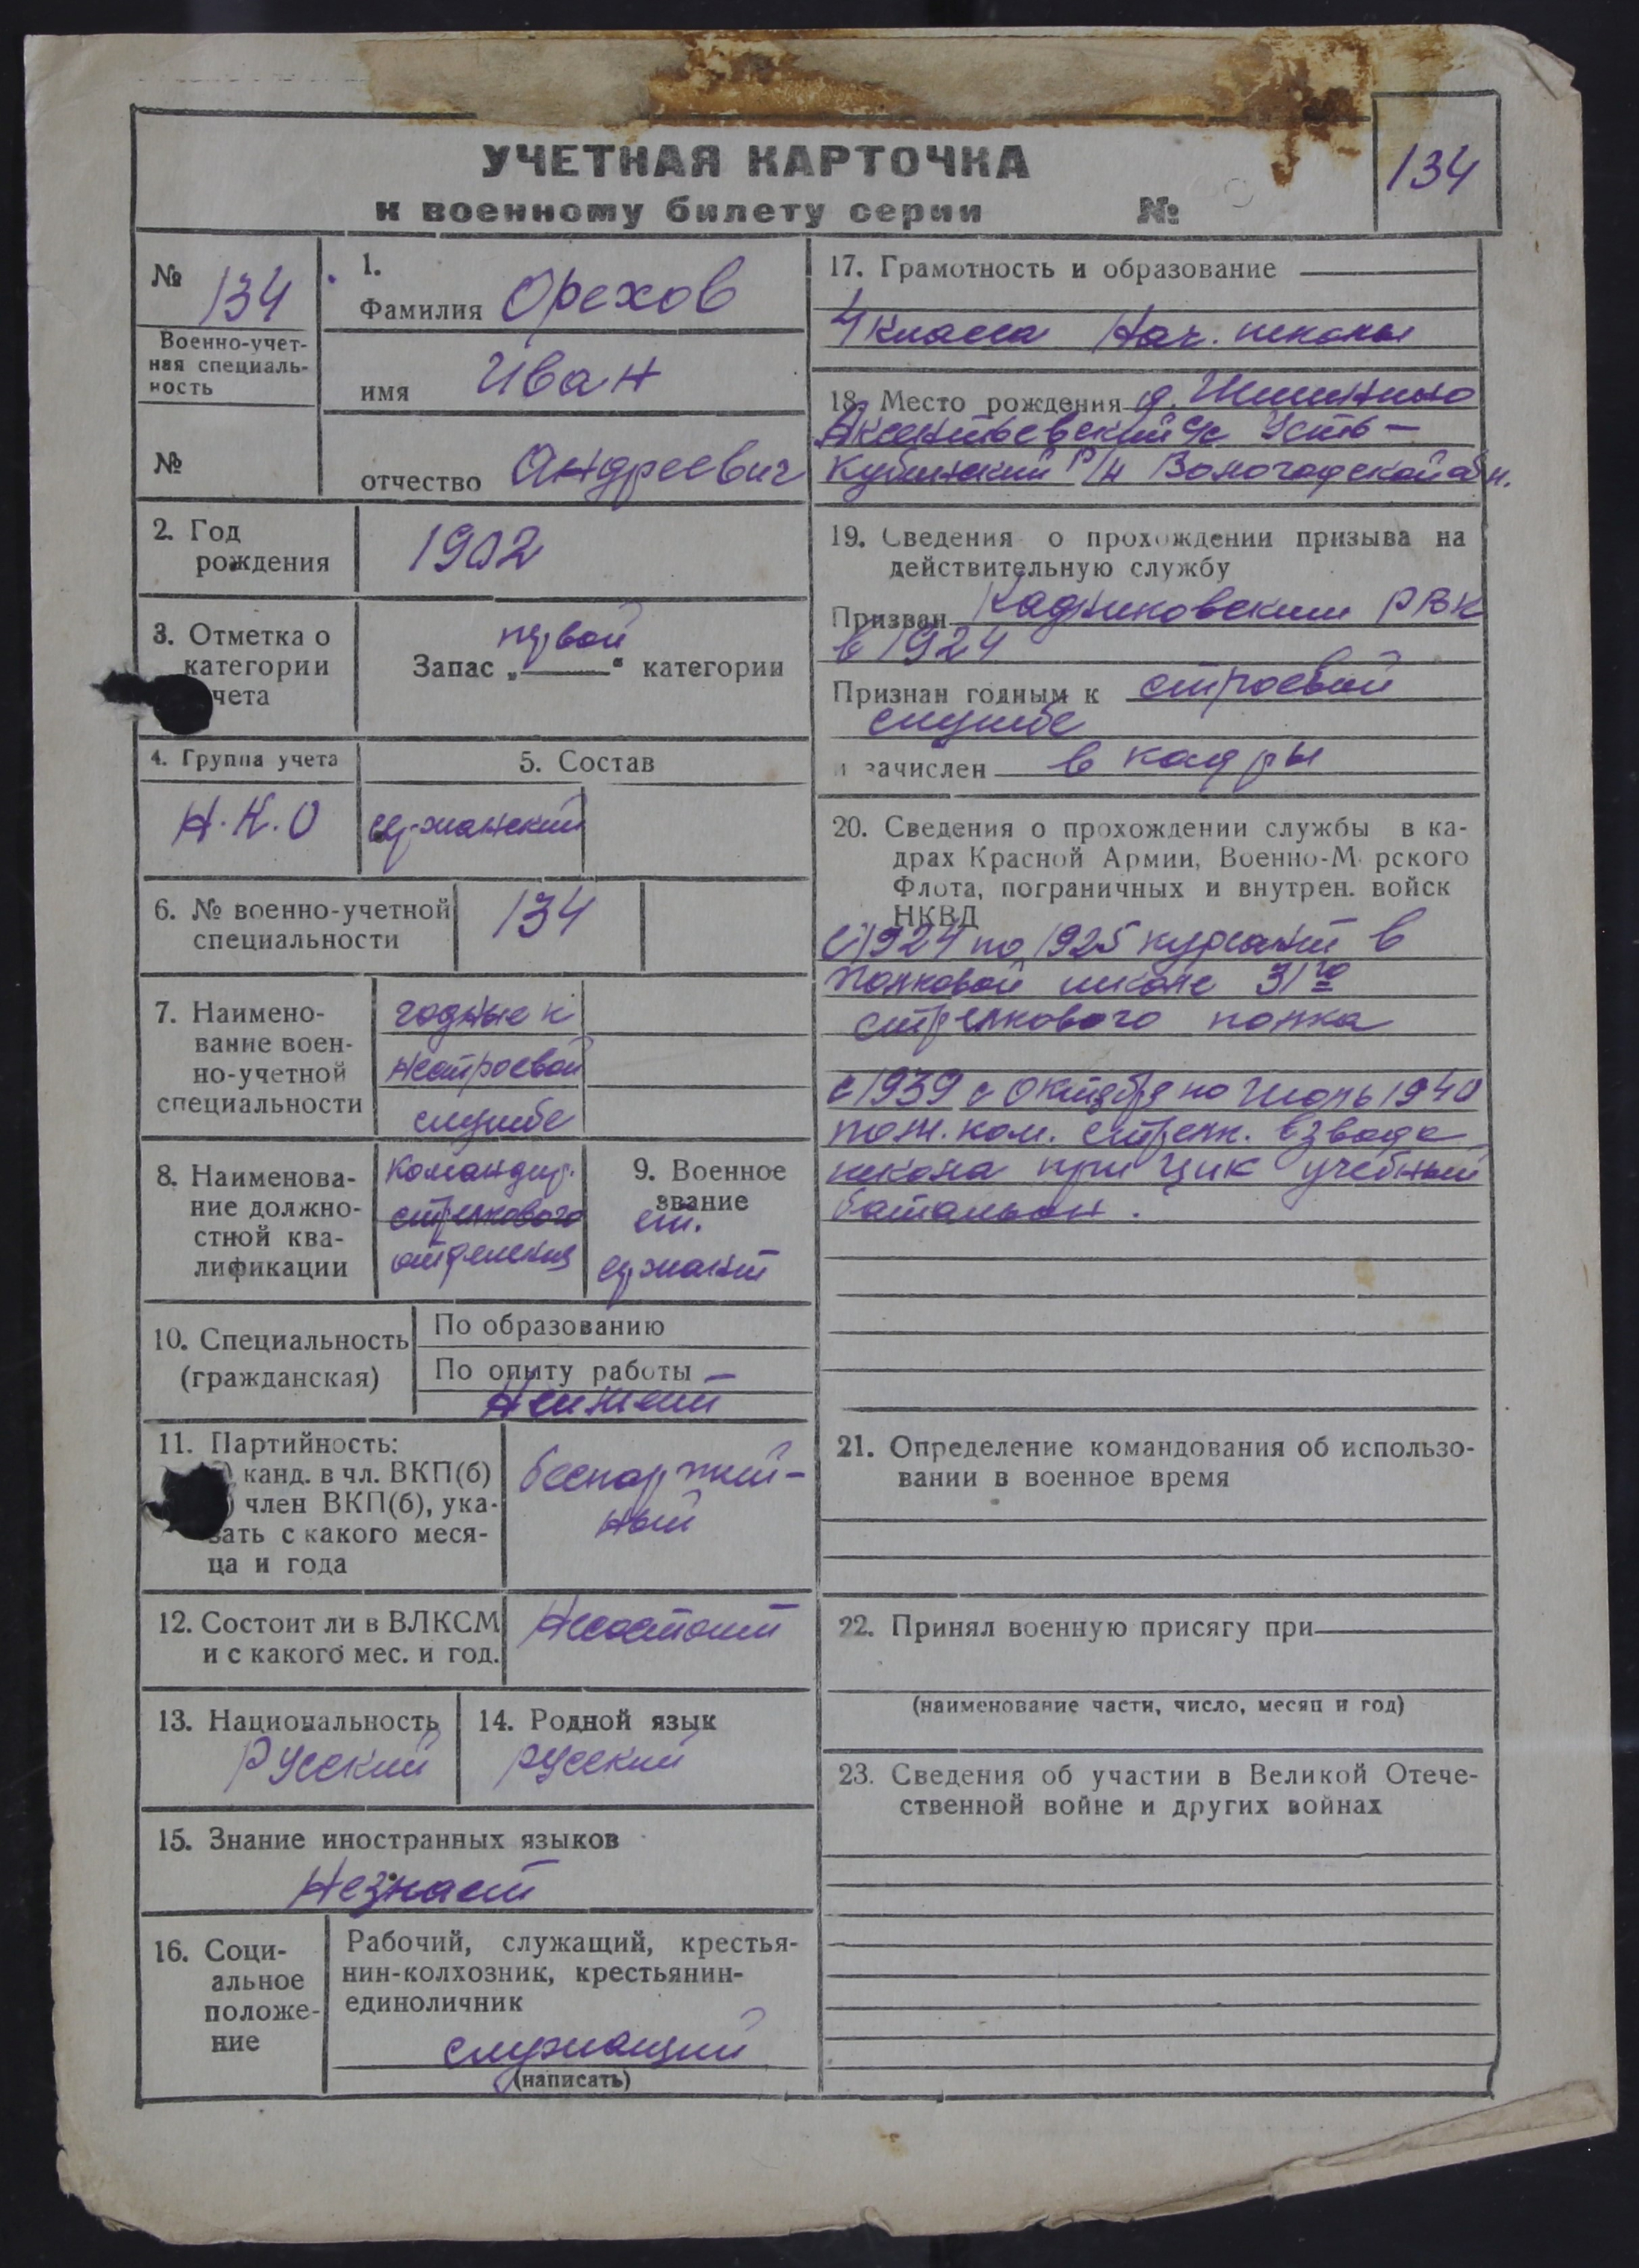 УЧЕТНАЯ КАРТОЧКА
к военному билету серии №
134
№ 134
Военно-учет-
ная специаль-
ность
№
1.
Фамилия Орехов
имя Иван
отчество Андреевич
2. Год
рождения
1902
3. Отметка о
категории
чета
первой
Запас „ “ категории
4. Группа учета
Н.К.О
5. Состав
сержанский
6. № военно-учетной
специальности
134
7. Наимено-
вание воен-
но-учетной
специальности
годные к
нестроевой
службе
8. Наименова-
ние должно-
стной ква-
лификации
Командир.
стрелкового
отделения
9. Военное
звание
ст.
сержант
10. Специальность
(гражданская)
По образованию
По опыту работы
Неимеит
11. Партийность:
) канд. в чл. ВКП(б)
) член ВКП(б), ука-
зать с какого меся-
ца и года
беспартий-
ный
12. Состоит ли в ВЛКСМ
и с какого мес. и год.
Несостоит
13. Национальность
Русский
14. Родной язык
русский
15. Знание иностранных языков
Незнает
16. Соци-
альное
положе-
ние
Рабочий, служащий, крестья-
нин-колхозник, крестьянин-
единоличник
служащий
(написать)
17. Грамотность и образование
4 класса Нач. школы
18. Место рождения д.
с/с Усть-
Кубинский р/н Вологодской обл.
19. Сведения о прохождении призыва на
действительную службу
Призван Кадниковским РВК
в 1924
Признан годным к строевой
службе
и зачислен в кадры
20. Сведения о прохождении службы в ка-
драх Красной Армии, Военно-М рского
Флота, пограничных и внутрен. войск
НКВД
С 1924 по 1925 курсант в
полковой школе 31го
стрелкового полка
с 1939 с октября по Июль 1940
пом. ком. стрелк. взвода
школа при ЦИК учебный
батальон.
21. Определение командования об использо-
вании в военное время
22. Принял военную присягу при
(наименование части, число, месяц и год)
23. Сведения об участии в Великой Отече-
ственной войне и других войнах